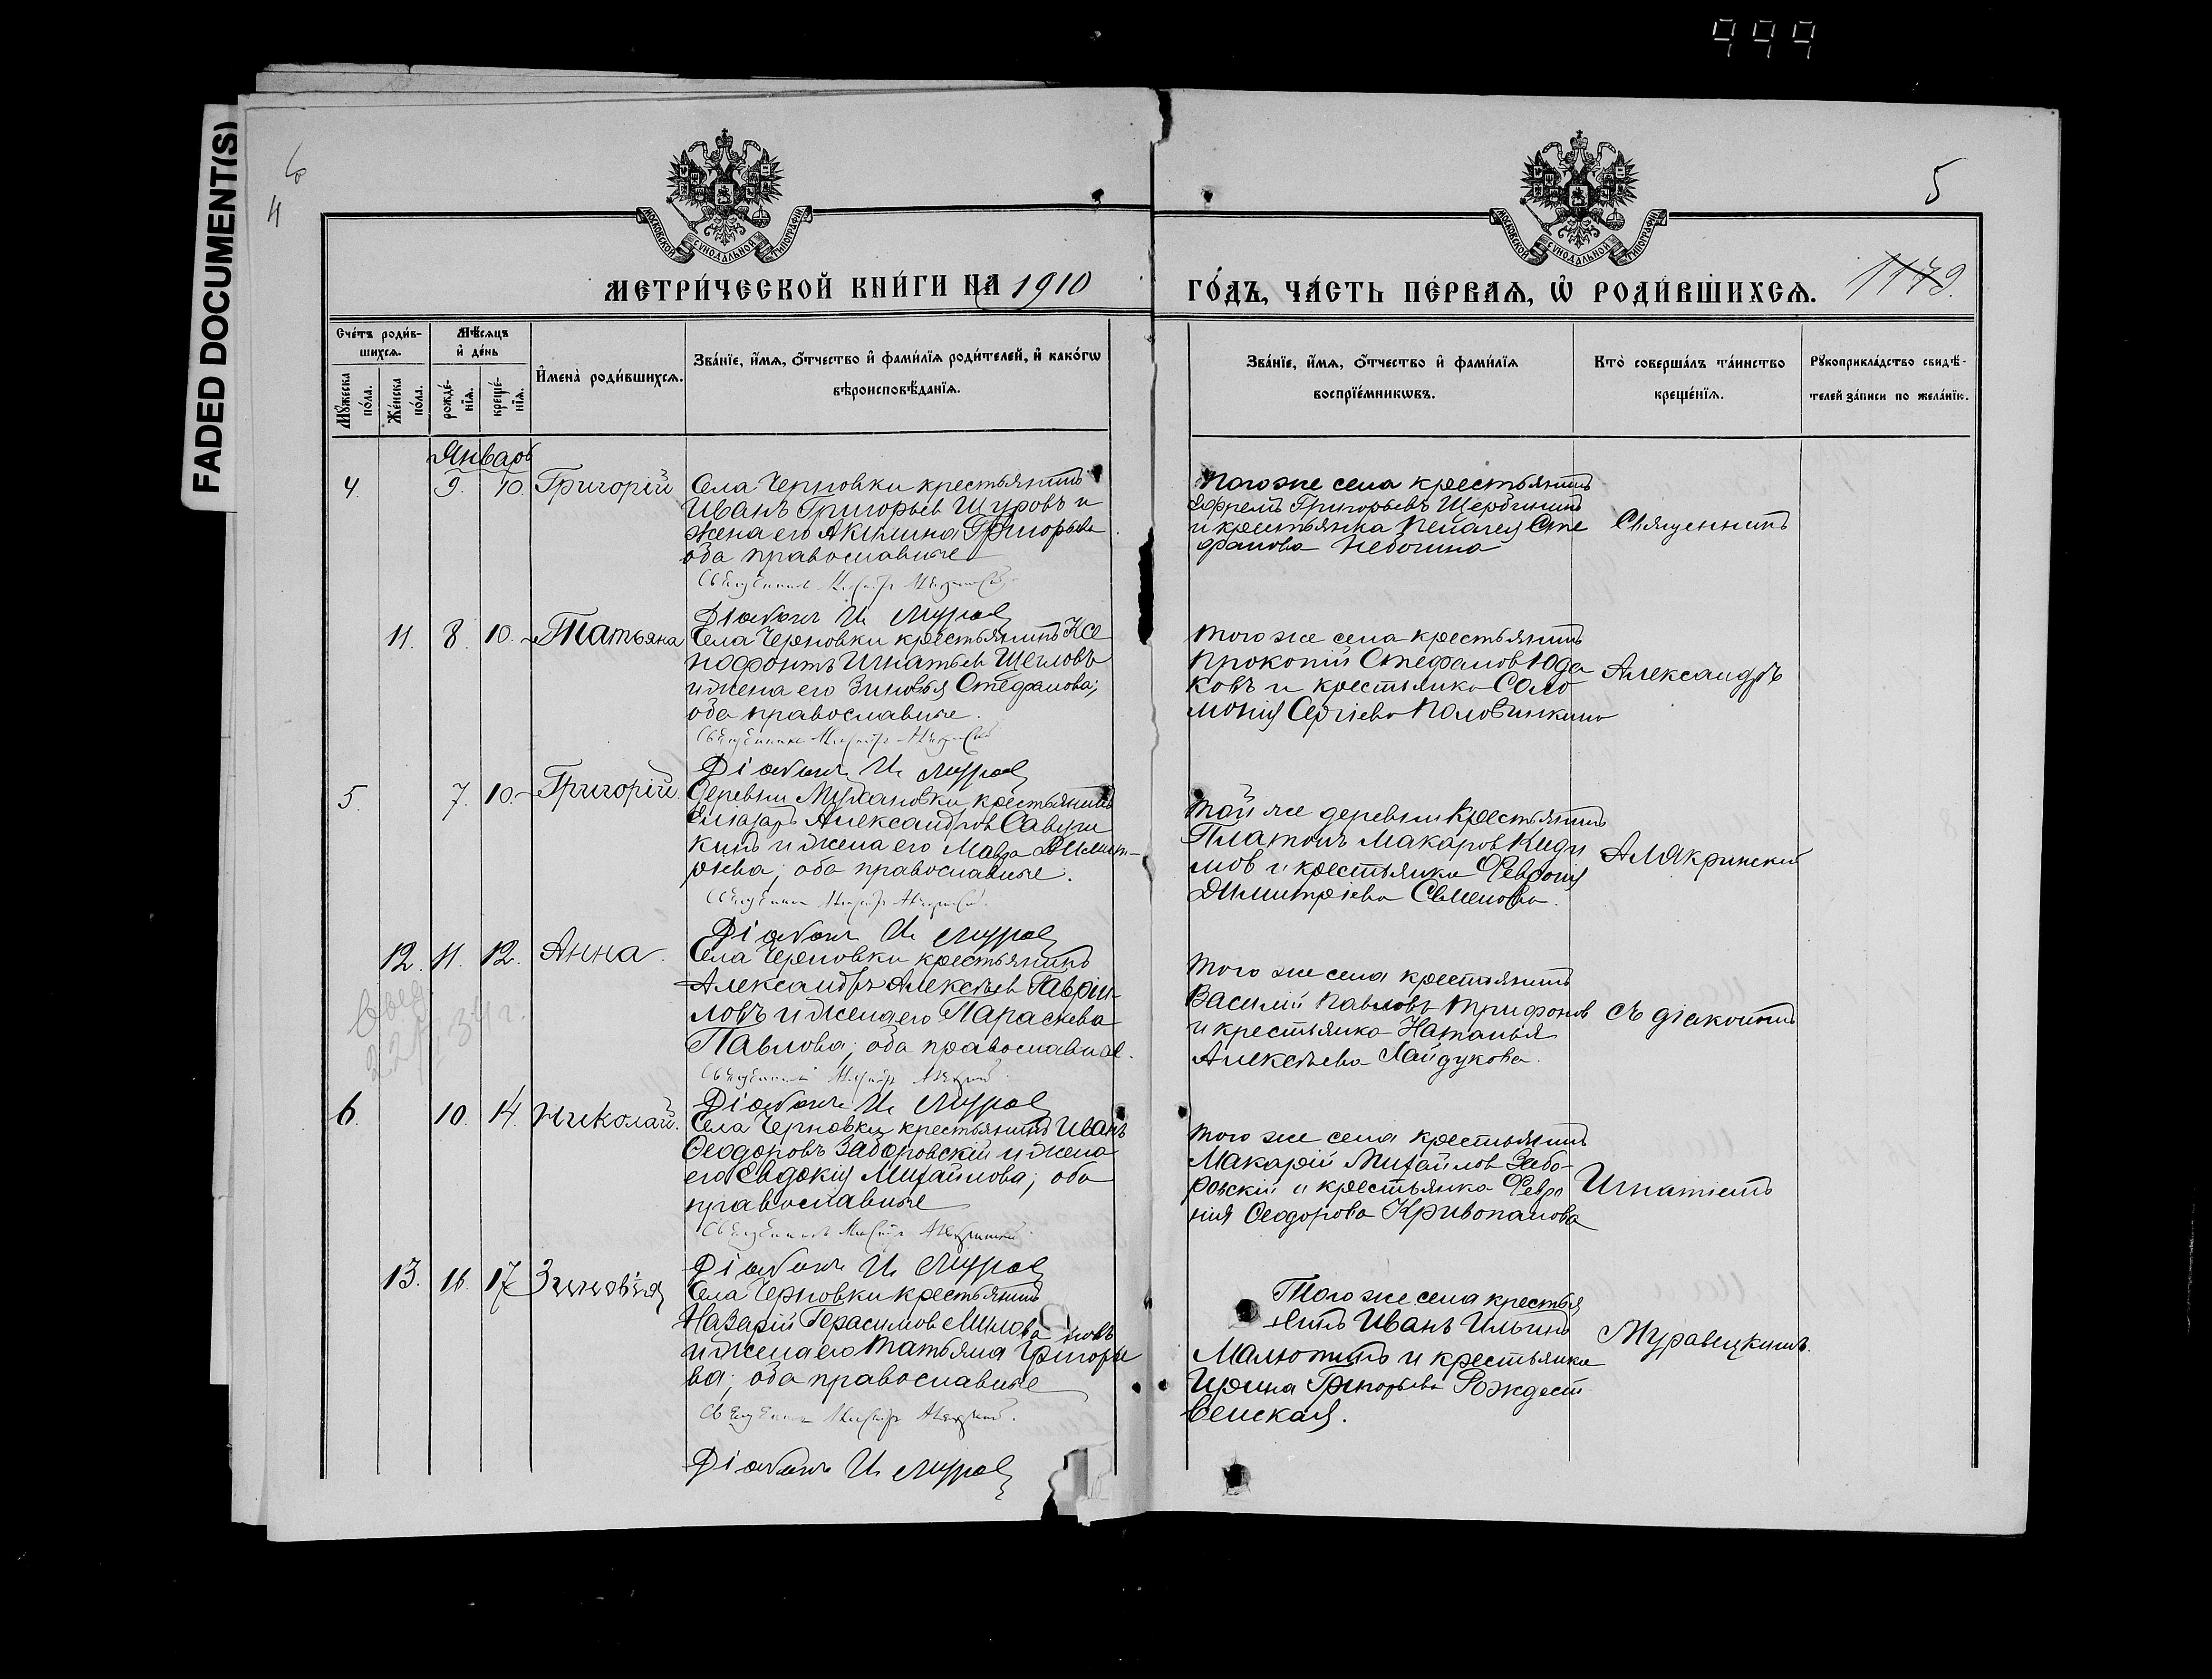 999
FADED DOCUMENT(S)
6
4
5
1179.
МОСКОВСКОЙ СѴНОДАЛЬНОЙ ТИПОГРАФІИ
МОСКОВСКОЙ СѴНОДАЛЬНОЙ ТИПОГРАФІИ
МЕТРИ́ЧЕСКОЙ КНИ́ГИ НА 1910
ГО́ДЪ, ЧА́СТЬ ПЕ́РВАѦ, Ѡ҆ РОДИ́ВШИХСѦ.
Сче́тъ роди́в-
шихсѧ.
Мѣ́сѧцъ
и҆ де́нь
Мꙋ́жеска
по́ла.
Же́нска
по́ла.
рожде́-
нїѧ.
креще́-
нїѧ.
И҆мена̀ роди́вшихсѧ.
Зва́нїе, и҆́мѧ, ѻ҆́тчество и҆ фами́лїѧ роди́телей, и҆ како́гѡ
вѣроисповѣ́данїѧ.
Зва́нїе, и҆́мѧ, ѻ҆́тчество и҆ фами́лїѧ
воспрїе́мникѡвъ.
Кто̀ соверша́лъ та́инство
креще́нїѧ.
Рꙋкоприкла́дство свидѣ́-
телей за́писи по жела́нїю.
Январь
4. 9. 10. Григорій
Села Черновки крестьянинъ
Иванъ Григорьев Щуровъ и
жена его Акилина Григорьева
оба православные
Діаконъ И. Мурав
Того же села крестьянинъ
Ефремъ Григорьевъ Щербининъ
и крестьянка Пелагея Сте
фанова
Священникъ
11. 8. 10. Татьяна
Села Черновки крестьянинъ Ксе
нофонтъ Игнатьев Щегловъ
и жена его Зиновья Стефанова;
оба православные.
Діаконъ И. Мурав
того же села крестьянинъ
Прокопій Стефанов Юда
ковъ и крестьянка Соло
монія Сергіева Половинкина
Александръ
5. 7. 10. Григорій.
Деревни Мухановки крестьянинъ
Елиазаръ Александров Савуш
кинъ и жена его Мавра Димит-
ріева; оба православные.
Діаконъ И. Мурав
той же деревни крестьянинъ
Платонъ Макаров
мов и крестьянка Феврония
Димитріева Семенова.
Алякринскій
12. 11. 12. Анна.
Села Черновки крестьянинъ
Александръ Алексѣев Гаври-
ловъ и жена его Параскева
Павлова; оба православные.
Діаконъ И. Мурав
того же села крестьянинъ
Василій Павловъ Трифонов
и крестьянка Наталья
Алексѣева Гайдукова.
съ діакономъ
6. 10. 14. Николай.
Села Черновки крестьянинъ Иванъ
Ѳеодоровъ Заборовскій и жена
его Евдокія Михайлова; оба
православные
Діаконъ И. Мурав
того же села крестьянинъ
Макарій Михайлов Забо-
ровскій и крестьянка Февро
нія Ѳеодорова Кривопалова
Игнатіемъ
13. 16. 17 Зиновія
Села Черновки крестьянинъ
Назарій Герасимов
и жена его Татьяна Григорье
ва; оба православные
Діаконъ И. Мурав
Того же села крестья
нинъ Иванъ Ильинъ
Малютинъ и крестьянка
Ирина Григорьева Рождест
венская.
Муравицкимъ.